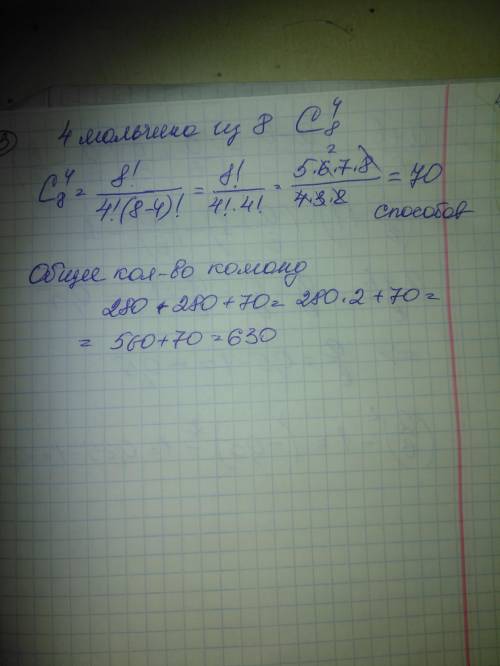 3) 4 мальчика из 8 C₈⁴
C₈⁴ = 8! / 4!(8-4)! = 8! / 4!·4! = 5·6·7·8 / 4·3·2 = 70
2
способов
Общее кол-во команд
280 + 280 + 70 = 280·2 + 70 =
= 560 + 70 = 630